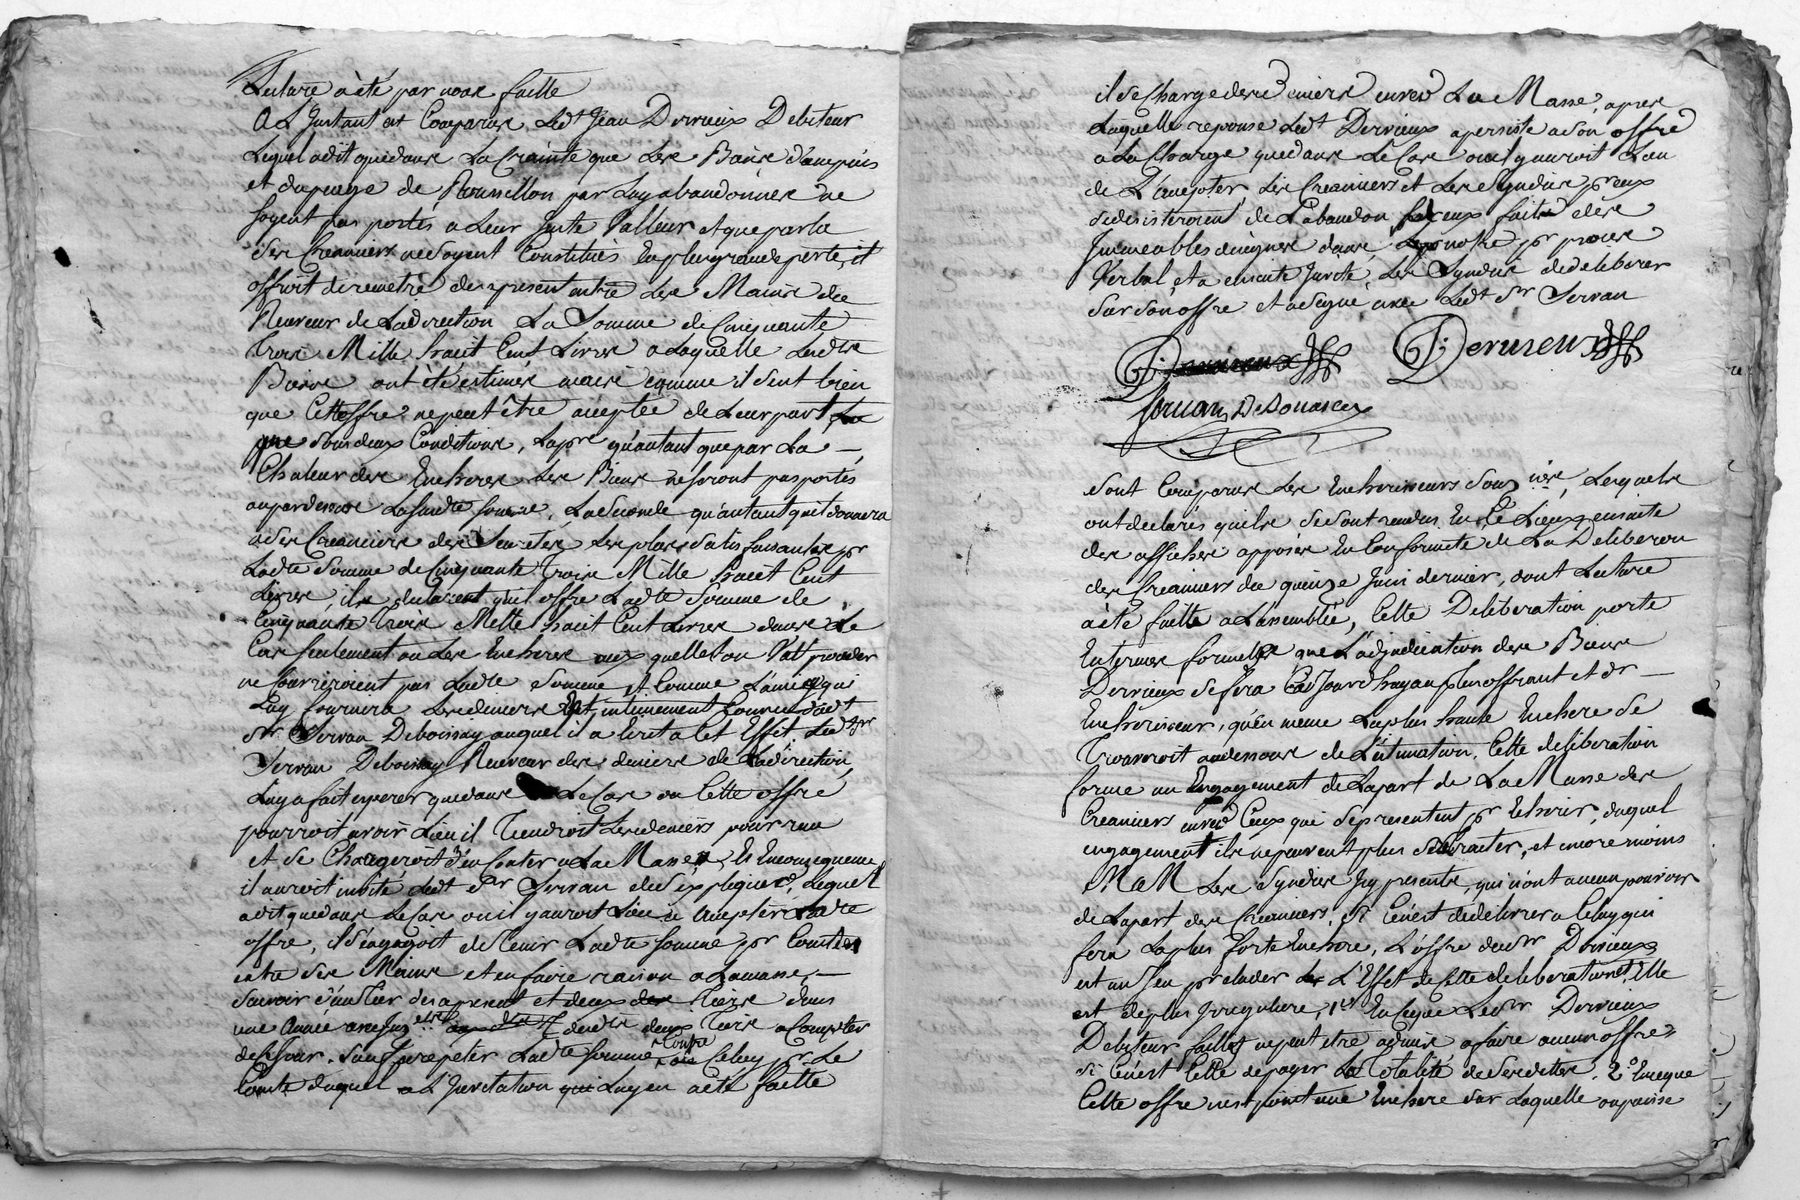 Lecture a été par nous faitte
A L'Instant est Comparu Ledt Jean Dervieux Debiteur
Lequel a dit que dans La Crainte que Les Biens d'ampuis
et du peage de Roussillon par Luy abandonnés ne
soyent pas portés a Leur Juste Valleur et que par la
ses Creanciers ne soyent Constitués En plus grande perte, il
offroit de remetre des present entre Les Mains du
Receveur de La direction La Somme de Cinquante
Trois Mille huit Cent Livres a Laquelle Lesdts
Biens ont été estimés mais comme il sent bien
que Cette offre ne peut être aceptée de Leur part
que sous deux Conditions, La pre qu'autant que par La
Chaleur des Encheres Les Biens ne seront pas portés
au par dessus Lasusdte somme, La Seconde qu'autant qu'il donnera
a Ses Creanciers des Seuretés Les plus satisfaisantes pr
Ladte Somme de Cinquante Trois Mille huit Cent
Livres, il declarent qu'il offre Ladte Somme de
Cinquante Trois Mille huit Cent Livres dans Le
Cas seulement ou Les Encheres aux quelles on Vat proceder
ne Couvriroient pas Ladte Somme et Comme L'ami qui
Luy fournira Les deniers Est intimement Connu dudt
Sr Servan Deboissay auquel il a Ecrit a Cet Effet Ledt Sr
Servan Deboissay Receveur des deniers de La direction,
Luy a fait esperer que dans Le Cas ou Cette offre
pourroit avoir Lieu il Tiendroit Les deniers pour reçu
et se Chargeroit d'en Conter a La Masse, En Consequence
il auroit invité Ledt Sr Servan de s'expliquer, Lequel
a dit que dans Le Cas ou il y auroit Lieu a Accepter Ladte
offre, il s'engageoit de Tenir Ladte somme pr Comtée
entre Ses Mains et en faire raison a La masse,
Savoir d'un Tier des apresent et deux Tiers dans
une Année desdts deux Tiers a Compter
de Ce Jour, Sauf a repeter Ladte somme Contre Celuy pr Le
Comte duquel a L'Invitation qui Luy en a été faitte
il se Charge des deniers envers La Masse, apres
Laquelle reponse Ledt Dervieux a persisté a Son offre
a La Charge que dans Le Cas ou il y auroit Lieu
de L'accepter, Les Creanciers et Les Syndics pr eux
se desisteroient de L'abandon a eux fait des
Immeubles designés dans notre pr proces
Verbal, et a ensuite Invité Les Syndics de deliberer
Sur Son offre et a signé avec Ledt Sr Servan
Dervieux
Servan Deboissay
Sont Comparus Les Encherisseurs Sous nés, Lesquels
ont declarés qu'ils se Sont rendus En Ce Lieu ensuite
des affiches apposées En Conformité de La Deliberon
des Creanciers du quinze Juin dernier, dont Lecture
a été faitte a L'assemblée, Cette Deliberation porte
En termes formels que L'adjudication des Biens
Dervieux se fera Ced Jourd'huy au plus offrant et dr
Encherisseur, qu'en meme La plus haute Enchere Se
Trouveroit audessous de L'estimation. Cette deliberation
forme un Engagement de La part de La Masse des
Creanciers envers Ceux qui se presentent pr Encherir, duquel
engagement ils ne peuvent plus se retracter, et encore moins
M M Les Syndics Icy presents, qui n'ont aucun pouvoir
de La part des Creanciers, Si Ce n'est de delivrer a Celuy qui
fera La plus forte Enchere, L'offre du Sr Dervieux
est un Jeu pr eluder L'Effet de Cette deliberation, Elle
est de plus Irreguliere, 1er En Ce que Le Sr Dervieux
Debiteur failly ne peut etre admis a faire aucun offre
Si Ce n'est Celle de payer La Totalité de Ses dettes. 2o En ce que
Cette offre n'est point une Enchere Sur Laquelle on puisse